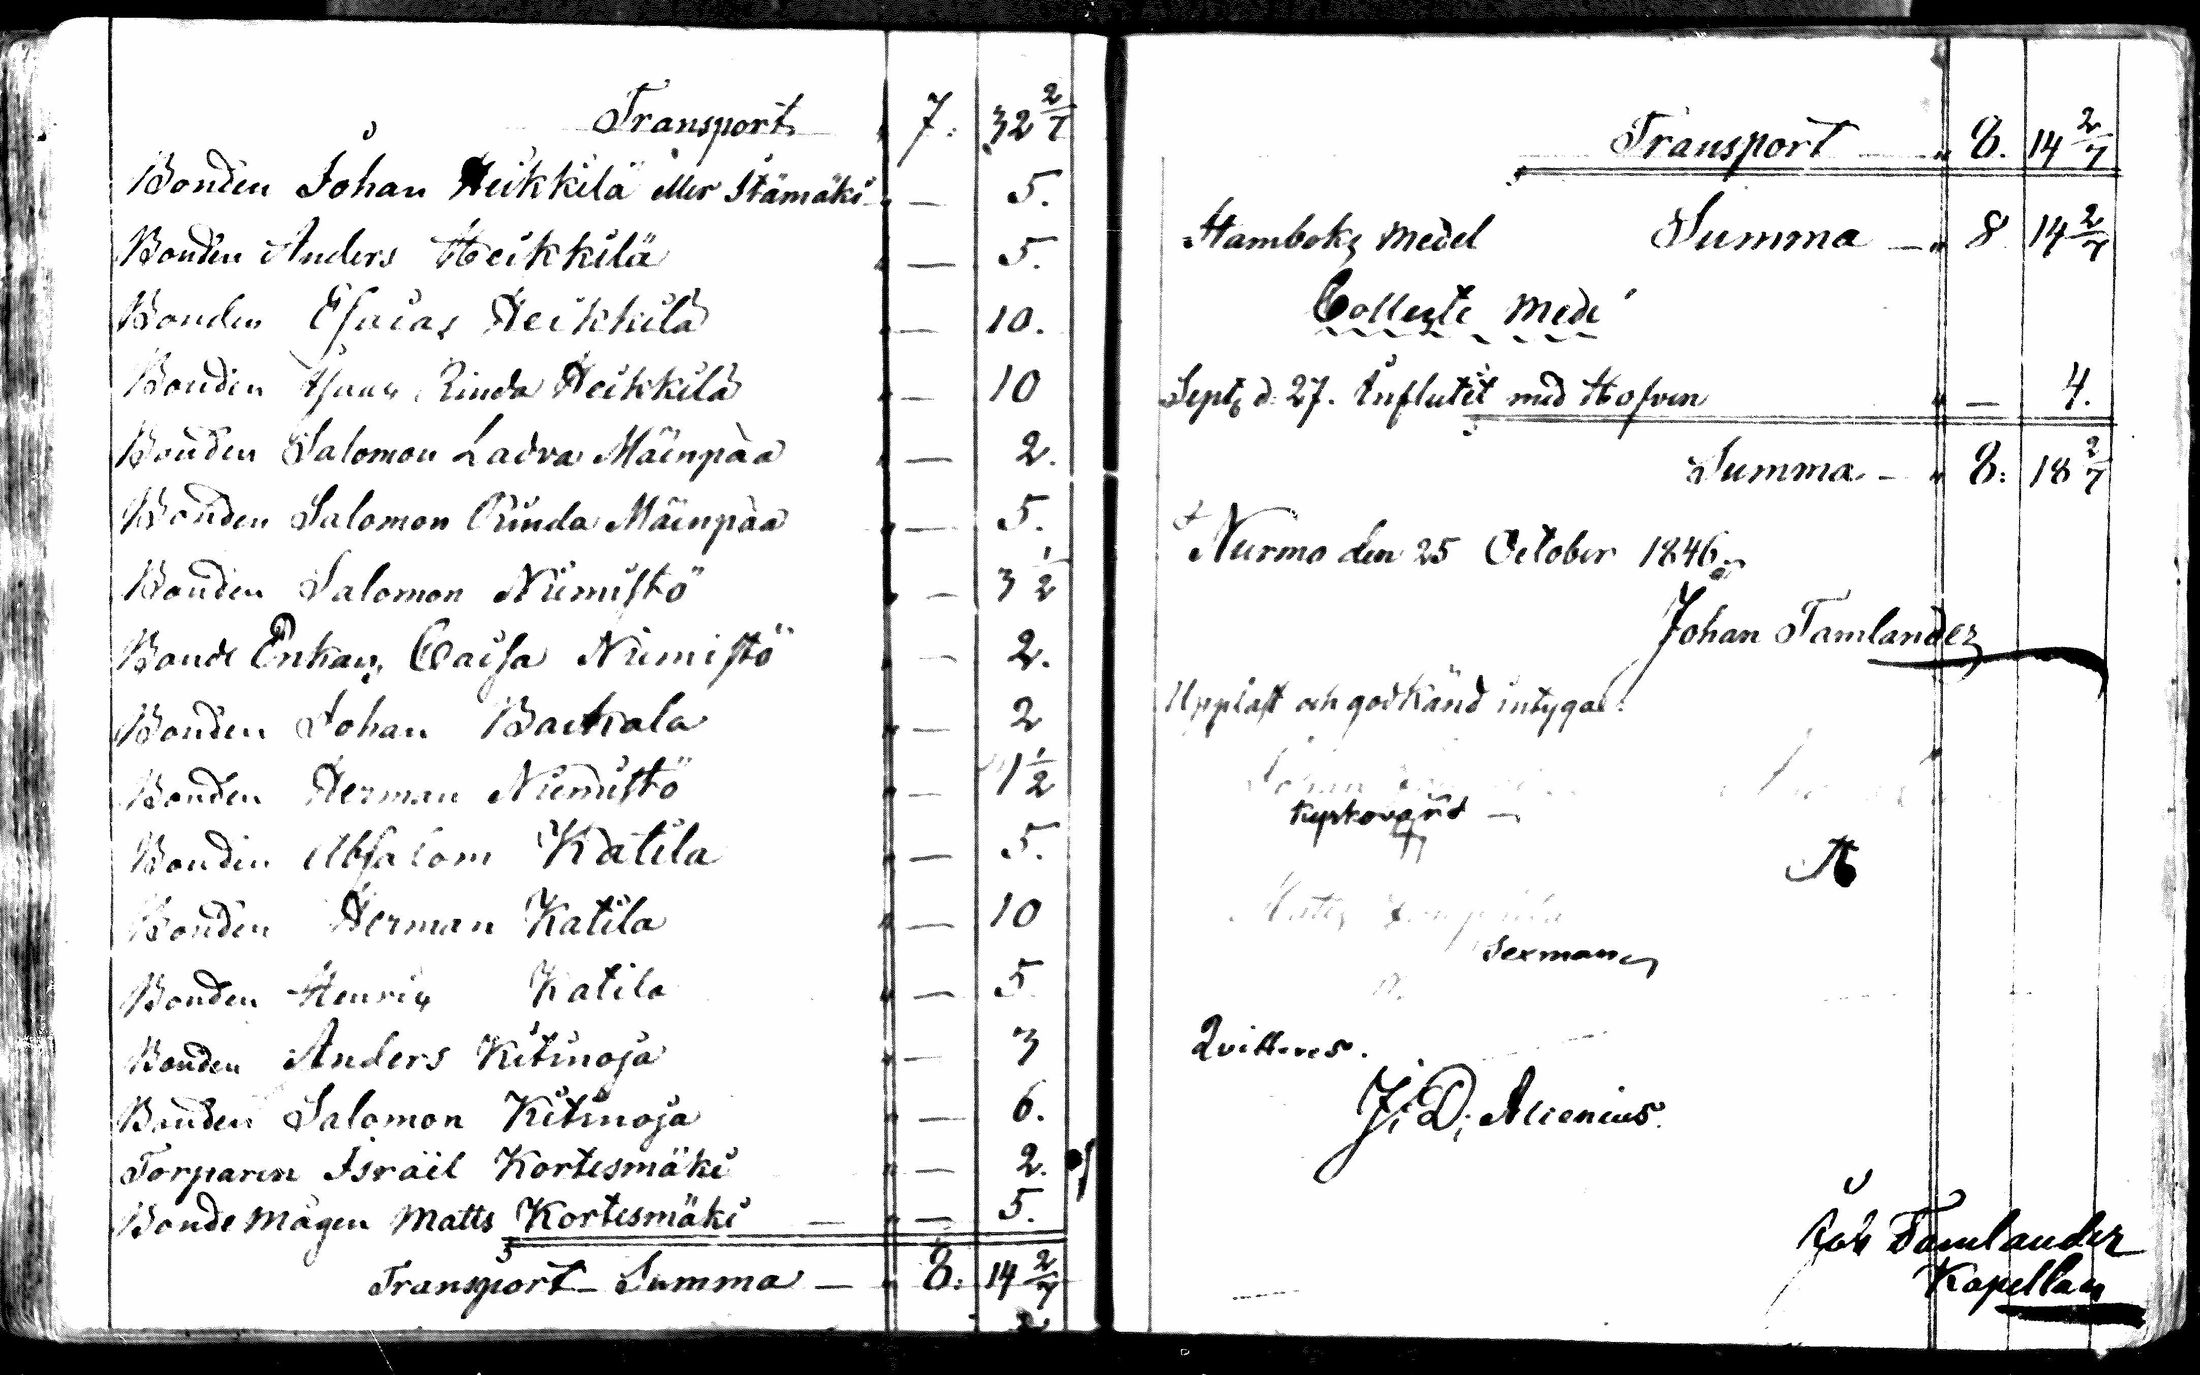 Transport " 7. 32 2/7
Bonden Johan Heikkilä eller Itämäki " — 5.
Bonden Anders Heikkilä " — 5.
Bonden Esaias Heikkilä " — 10.
Bonden Rinda Heikkilä " — 10
Bonden Salomon Ladva Mäenpää " — 2.
Bonden Salomon Rinda Mäenpää " — 5.
Bonden Salomon Niemistö " — 3 1/2
Bonde Enkan Caisa Niemistö " — 2.
Bonden Johan " — 2
Bonden Herman Niemistö " — 1 1/2
Bonden Absalom Katila " — 5.
Bonden Herman Katila " — 10
Bonden Henric Katila " — 5
Bonden Anders Kitinoja " — 3
Bonden Salomon Kitinoja " — 6.
Torparen Israël Kortesmäki " — 2.
Bonde Mågen Matts Kortesmäki — " — 5.
Transport Summa — " 8. 14 2/7
Transport — " 8. 14 2/7
Stamboks Medel Summa — " 8 14 2/7
Collecte Medel
Sept. d. 27. Influtit med Hofven " — 4.
Summa — " 8: 18 2/7
Nurmo den 25 October 1846
Johan Tamlander
Uppläst och godkänd intygar:
Johan
Kyrkovärd —
Matts
Sexman
Qvitteres.
J. D. Alcenius.
Joh Tamlander
Kapellan